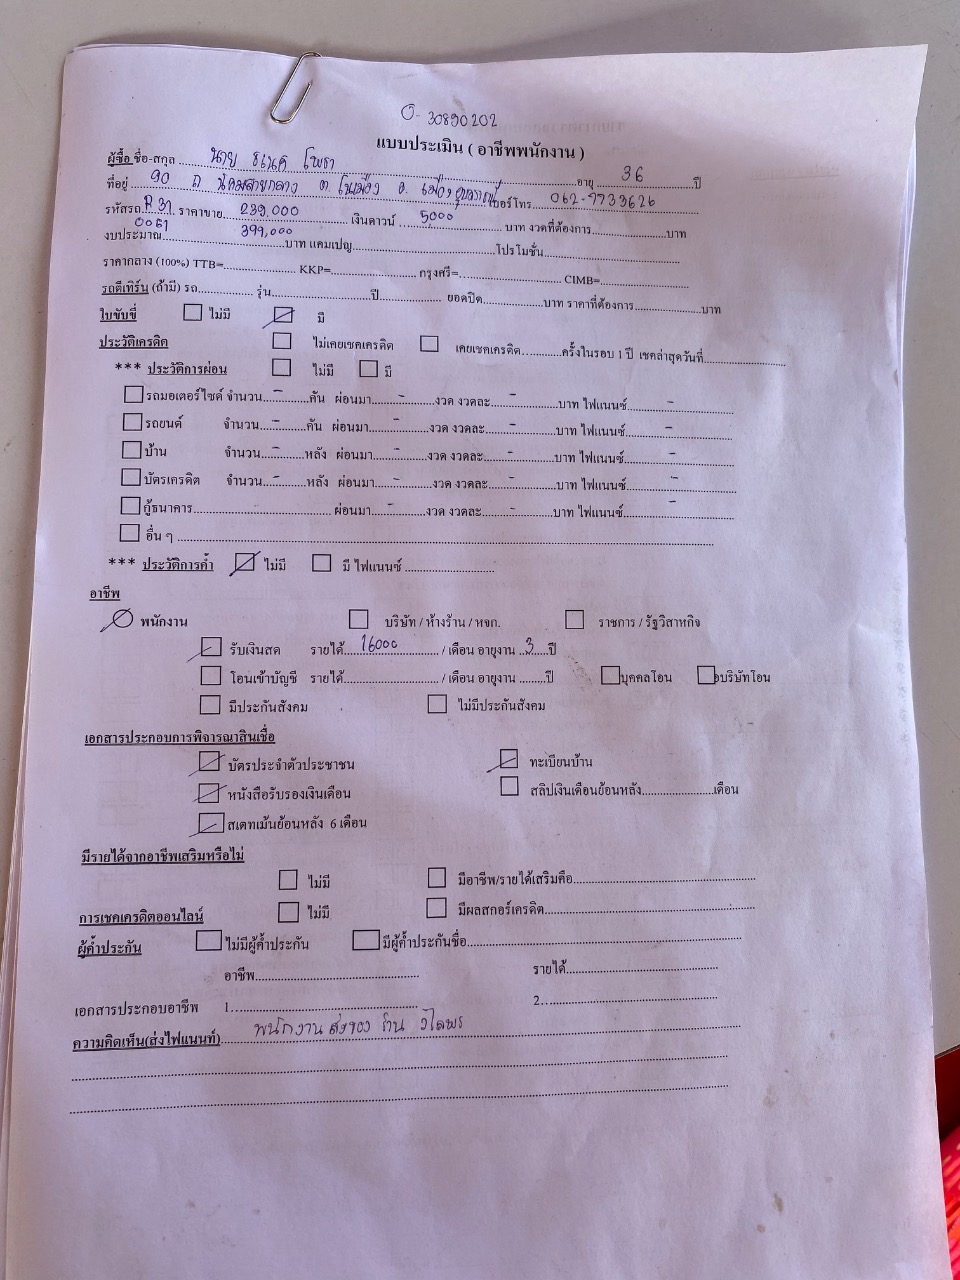 O- 30890202
แบบประเมิน ( อาชีพพนักงาน )
ผู้ซื้อ ชื่อ-สกุล นาย ธเนศ โพธา อายุ 36 ปี
ที่อยู่ 90 ถ นิคมสายกลาง ต. โนเมือง อ. เมือง เบอร์โทร 062-9733626
รหัสรถ R 31 0061 ราคาขาย 239,000 เงินดาวน์ 5000 บาท งวดที่ต้องการ บาท
งบประมาณ 399,000 บาท แคมเปญ โปรโมชั่น
ราคากลาง (100%) TTB= KKP= กรุงศรี= CIMB=
รถตีเทิร์น (ถ้ามี) รถ รุ่น ปี ยอดปิด บาท ราคาที่ต้องการ บาท
ใบขับขี่ ไม่มี มี
ประวัติเครดิต ไม่เคยเชคเครดิต เคยเชคเครดิต ครั้งในรอบ 1 ปี เชคล่าสุดวันที่
*** ประวัติการผ่อน ไม่มี มี
รถมอเตอร์ไซค์ จำนวน - คัน ผ่อนมา - งวด งวดละ - บาท ไฟแนนซ์ -
รถยนต์ จำนวน - คัน ผ่อนมา - งวด งวดละ - บาท ไฟแนนซ์ -
บ้าน จำนวน - หลัง ผ่อนมา - งวด งวดละ - บาท ไฟแนนซ์ -
บัตรเครดิต จำนวน - หลัง ผ่อนมา - งวด งวดละ - บาท ไฟแนนซ์ -
กู้ธนาคาร ผ่อนมา - งวด งวดละ - บาท ไฟแนนซ์ -
อื่น ๆ
*** ประวัติการค้ำ ไม่มี มี ไฟแนนซ์
อาชีพ
พนักงาน บริษัท / ห้างร้าน / หจก. ราชการ / รัฐวิสาหกิจ
รับเงินสด รายได้ 16000 / เดือน อายุงาน 3 ปี
โอนเข้าบัญชี รายได้ / เดือน อายุงาน ปี บุคคลโอน บริษัทโอน
มีประกันสังคม ไม่มีประกันสังคม
เอกสารประกอบการพิจารณาสินเชื่อ
บัตรประจำตัวประชาชน ทะเบียนบ้าน
หนังสือรับรองเงินเดือน สลิปเงินเดือนย้อนหลัง เดือน
สเตทเม้นย้อนหลัง 6 เดือน
มีรายได้จากอาชีพเสริมหรือไม่
ไม่มี มีอาชีพ/รายได้เสริมคือ
การเชคเครดิตออนไลน์ ไม่มี มีผลสกอร์เครดิต
ผู้ค้ำประกัน ไม่มีผู้ค้ำประกัน มีผู้ค้ำประกันชื่อ
อาชีพ รายได้
เอกสารประกอบอาชีพ 1. 2.
ความคิดเห็น(ส่งไฟแนนท์) พนักงาน ส่งของ ร้าน วิไลพร